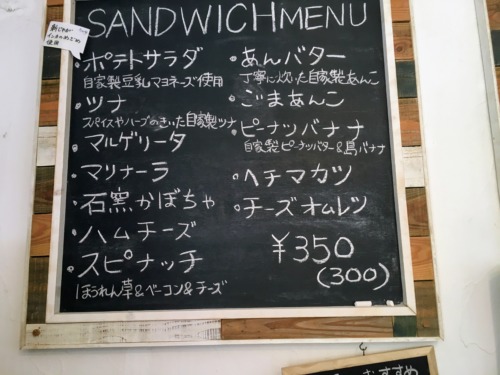 SANDWICH MENU
使用
・ポテトサラダ
自家製豆乳マヨネーズ使用
・ツナ
スパイスやハーブのきいた自家製ツナ
・マルゲリータ
・マリナーラ
・石窯かぼちゃ
・ハムチーズ
・スピナッチ
ほうれん草&ベーコン&チーズ
・あんバター
丁寧に炊いた自家製あんこ
・ごまあんこ
・ピーナッツバナナ
自家製ピーナッツバター&島バナナ
・ヘチマカツ
・チーズオムレツ
¥350
(300)
おすすめ